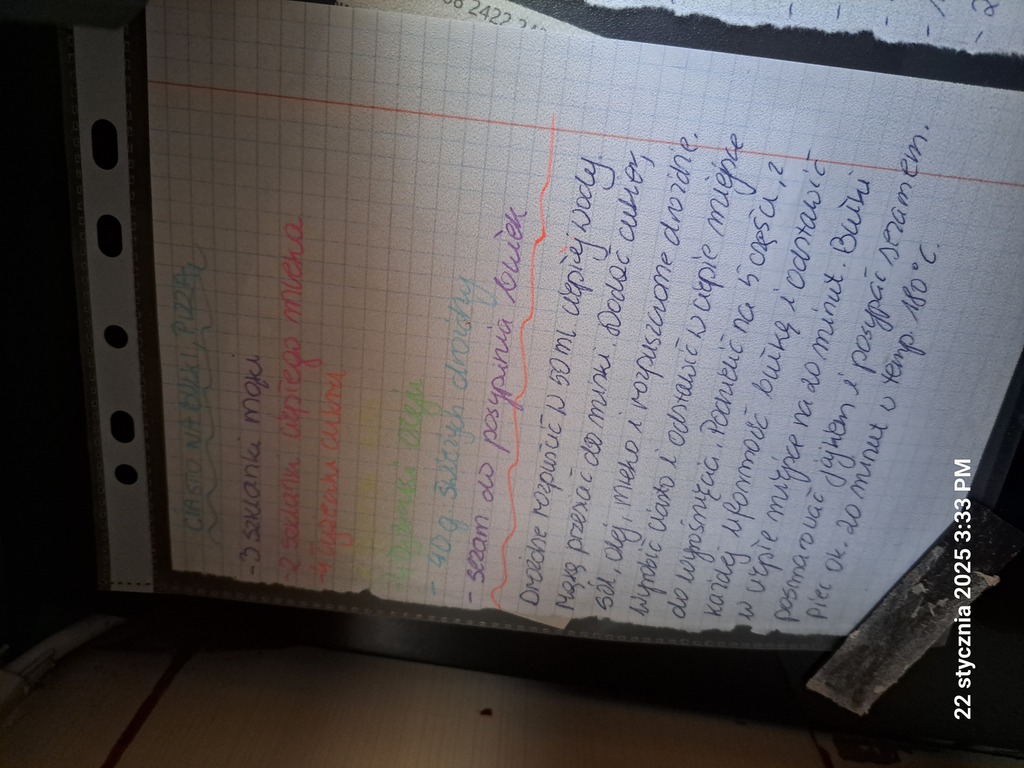 CIASTO NA BUŁKI, PIZZĘ
- 3 szklanki mąki
- 2 szklanki ciepłego mleka
- 4 łyżeczki cukru
oleju
- 40g świeżych drożdży
- sezam do posypania bułek
Drożdże rozpuścić w 50ml ciepłej wody.
Mąkę przesiać do miski. Dodać cukier,
sól, olej, mleko i rozpuszczone drożdże.
Wyrobić ciasto i odstawić w ciepłe miejsce
do wyrośnięcia. Podzielić na 5 części, z
każdej uformować bułkę i odstawić
w ciepłe miejsce na 20 minut. Bułki
posmarować jajkiem i posypać sezamem.
Piec ok. 20 minut w temp. 180°C.
22 stycznia 2025 3:33 PM